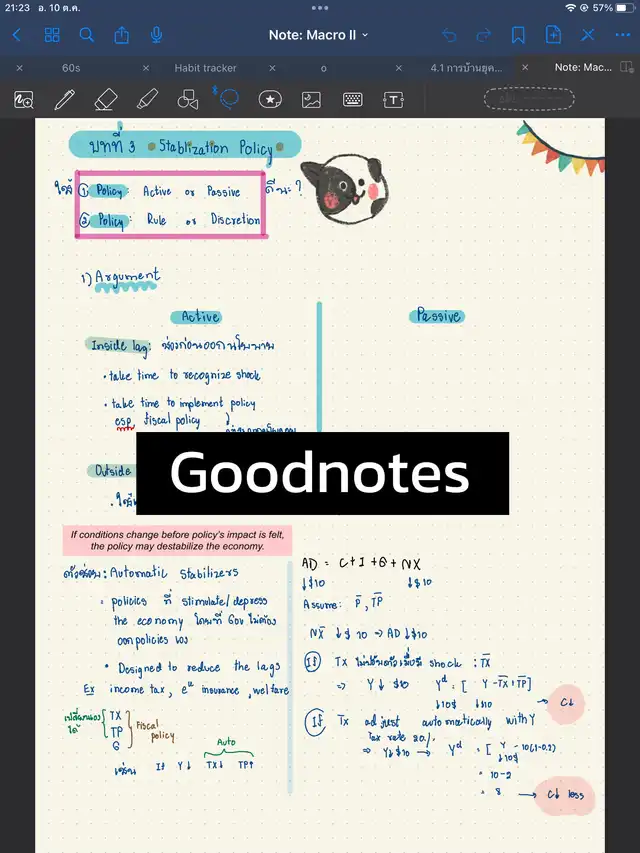 21:23 อ. 10 ต.ค.
57%
Note: Macro II
60s
Habit tracker
o
4.1 การบ้านยุค...
Note: Mac...
บทที่ 3 Stablization Policy
ใช้ ① Policy: Active or Passive ดีนะ?
② Policy: Rule or Discretion
1) Argument
Active
Passive
Inside lag: ช่วงก่อนออกนโยบาย
• take time to recognize shock
• take time to implement policy
esp. fiscal policy
Outside
Goodnotes
If conditions change before policy's impact is felt,
the policy may destabilize the economy.
ตัวช่วย: Automatic Stabilizers
= policies ที่ stimulate/depress
the economy โดยที่ Gov ไม่ต้อง
ออกpolicies เอง
• Designed to reduce the lags
Ex income tax, eᵘ insurance, welfare
TX
TP
G
Fiscal policy
Auto
เช่น If Y↓ TX↓ TP↑
AD = C+I+G+NX
↓$10 ↓$10
Assume: P̅, T̅P̅
N̅X̅ ↓$10 ⇒ AD ↓$10
If TX ไม่ปรับตัวเมื่อมี shock: T̅X̅
⇒ Y↓ $10 Yᵈ = [ Y - T̅X̅ + T̅P̅ ]
↓10$ ↓$10
→ C↓
If Tx adjust automatically with Y
Tax rate 20%
⇒ Y↓$10 → Yᵈ = [ Y - 10(1-0.2)
↓10$
= 10-2
= 8 → C↓ less